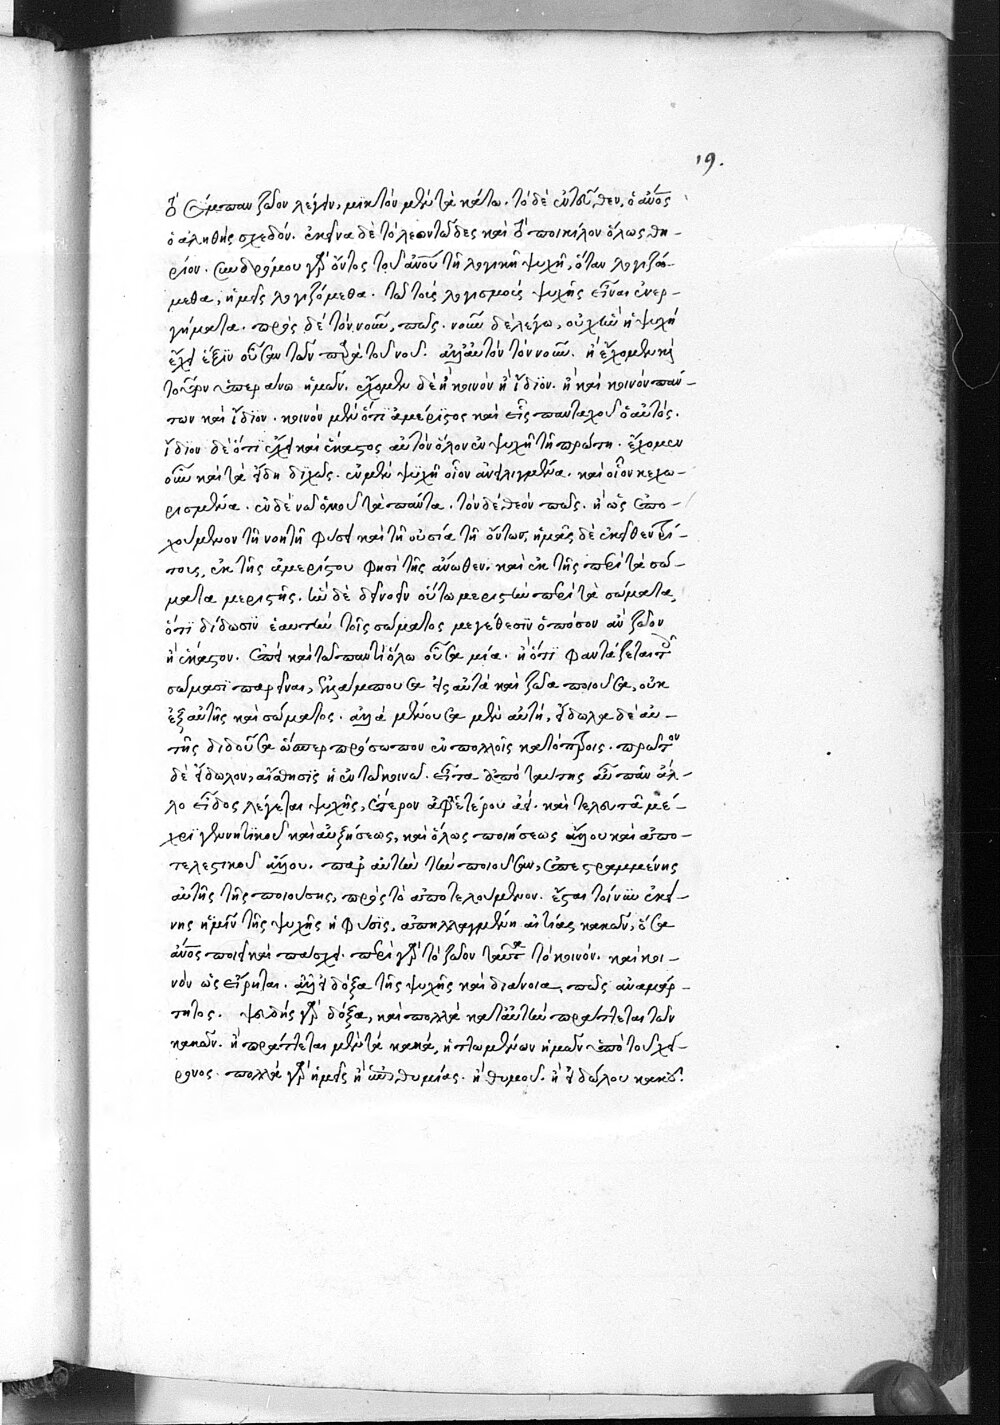 19.
τὸ σύμπαν ζῷον λέγειν, μικτὸν μὲν τὰ κάτω. τὸ δὲ ἐντεῦθεν, ὁ ἄνος
ὁ ἀληθὴς σχεδόν. ἐκεῖνα δὲ τὸ λεοντῶδες καὶ τὸ ποικίλον ὅλως θη-
ρίον. συνδρόμου γὰρ ὄντος τοῦ ἀνου τῇ λογικῇ ψυχῇ, ὅταν λογιζώ-
μεθα, ἡμεῖς λογιζόμεθα. τῷ τοὺς λογισμοὺς ψυχῆς εἶναι ἐνερ-
γήματα. πρὸς δὲ τὸν νοῦν, πῶς. νοῦν δὲ λέγω, οὐχ ἣν ἡ ψυχὴ
ἔχει ἕξιν οὖσαν τῶν παρὰ τοῦ νοῦ. ἀλλ' αὐτὸν τὸν νοῦν. ἢ ἔχομεν καὶ
τοῦτον ὑπεράνω ἡμῶν. ἔχομεν δὲ ἢ κοινὸν ἢ ἴδιον. ἢ καὶ κοινὸν πάν-
των καὶ ἴδιον. κοινὸν μὲν ὅτι ἀμέριστος καὶ εἷς πανταχοῦ ὁ αὐτός.
ἴδιον δὲ ὅτι ἔχει καὶ ἕκαστος αὐτὸν ὅλον ἐν ψυχῇ τῇ πρώτῃ. ἔχομεν
οὖν καὶ τὰ εἴδη διχῶς. ἐν μὲν ψυχῇ οἷον ἀνειλιγμένα. καὶ οἷον κεχω-
ρισμένα. ἐν δὲ νῷ ὁμοῦ τὰ πάντα. τὸν δὲ θεὸν πῶς. ἢ ὡς ἐπο-
χούμενον τῇ νοητῇ φύσει καὶ τῇ οὐσίᾳ τῇ ὄντως, ἡμᾶς δὲ ἐκεῖθεν τρί-
τους, ἐκ τῆς ἀμερίστου φησὶ τῆς ἄνωθεν. καὶ ἐκ τῆς περὶ τὰ σώ-
ματα μεριστῆς. ἣν δὲ δεῖ νοεῖν οὕτω μεριστὴν περὶ τὰ σώματα,
ὅτι δίδωσιν ἑαυτὴν τοῖς σώματος μεγέθεσιν ὁπόσον ἂν ζῷον
ᾖ ἕκαστον. ἐπεὶ καὶ τῷ παντὶ ὅλῳ οὖσα μία. ἢ ὅτι φαντάζεται τοῖς
σώμασι παρεῖναι, ἐλλάμπουσα εἰς αὐτὰ καὶ ζῷα ποιοῦσα, οὐκ
ἐξ αὐτῆς καὶ σώματος. ἀλλὰ μένουσα μὲν αὐτή, εἴδωλα δὲ αὐ-
τῆς διδοῦσα ὥσπερ πρόσωπον ἐν πολλοῖς κατόπτροις. πρῶτον
δὲ εἴδωλον, αἴσθησις ἡ ἐν τῷ κοινῷ. εἶτα ἀπὸ ταύτης αὖ πᾶν ἄλ-
λο εἶδος λέγεται ψυχῆς, ἕτερον ἀφ' ἑτέρου ἀεί. καὶ τελευτᾷ μέ-
χρι γεννητικοῦ καὶ αὐξήσεως, καὶ ὅλως ποιήσεως ἄλλου καὶ ἀπο-
τελεστικοῦ ἄλλου. παρ' αὐτὴν τὴν ποιοῦσαν, ἐπεστραμμένης
αὐτῆς τῆς ποιούσης, πρὸς τὸ ἀποτελούμενον. ἔσται τοίνυν ἐκεί-
νης ἡμῖν τῆς ψυχῆς ἡ φύσις, ἀπηλλαγμένη αἰτίας κακῶν, ὅσα
ἄνος ποιεῖ καὶ πάσχει. περὶ γὰρ τὸ ζῷον ταῦτα τὸ κοινόν. καὶ κοι-
νὸν ὡς εἴρηται. ἀλλ' εἰ δόξα τῆς ψυχῆς καὶ διάνοια, πῶς ἀναμάρ-
τητος. ψευδὴς γὰρ δόξα, καὶ πολλὰ κατ' αὐτὴν πράττεται τῶν
κακῶν. ἢ πράττεται μὲν τὰ κακά, ἡττωμένων ἡμῶν ὑπὸ τοῦ χεί-
ρονος. πολλὰ γὰρ ἡμεῖς ἢ ἐπιθυμίας. ἢ θυμοῦ. ἢ εἰδώλου κακοῦ.